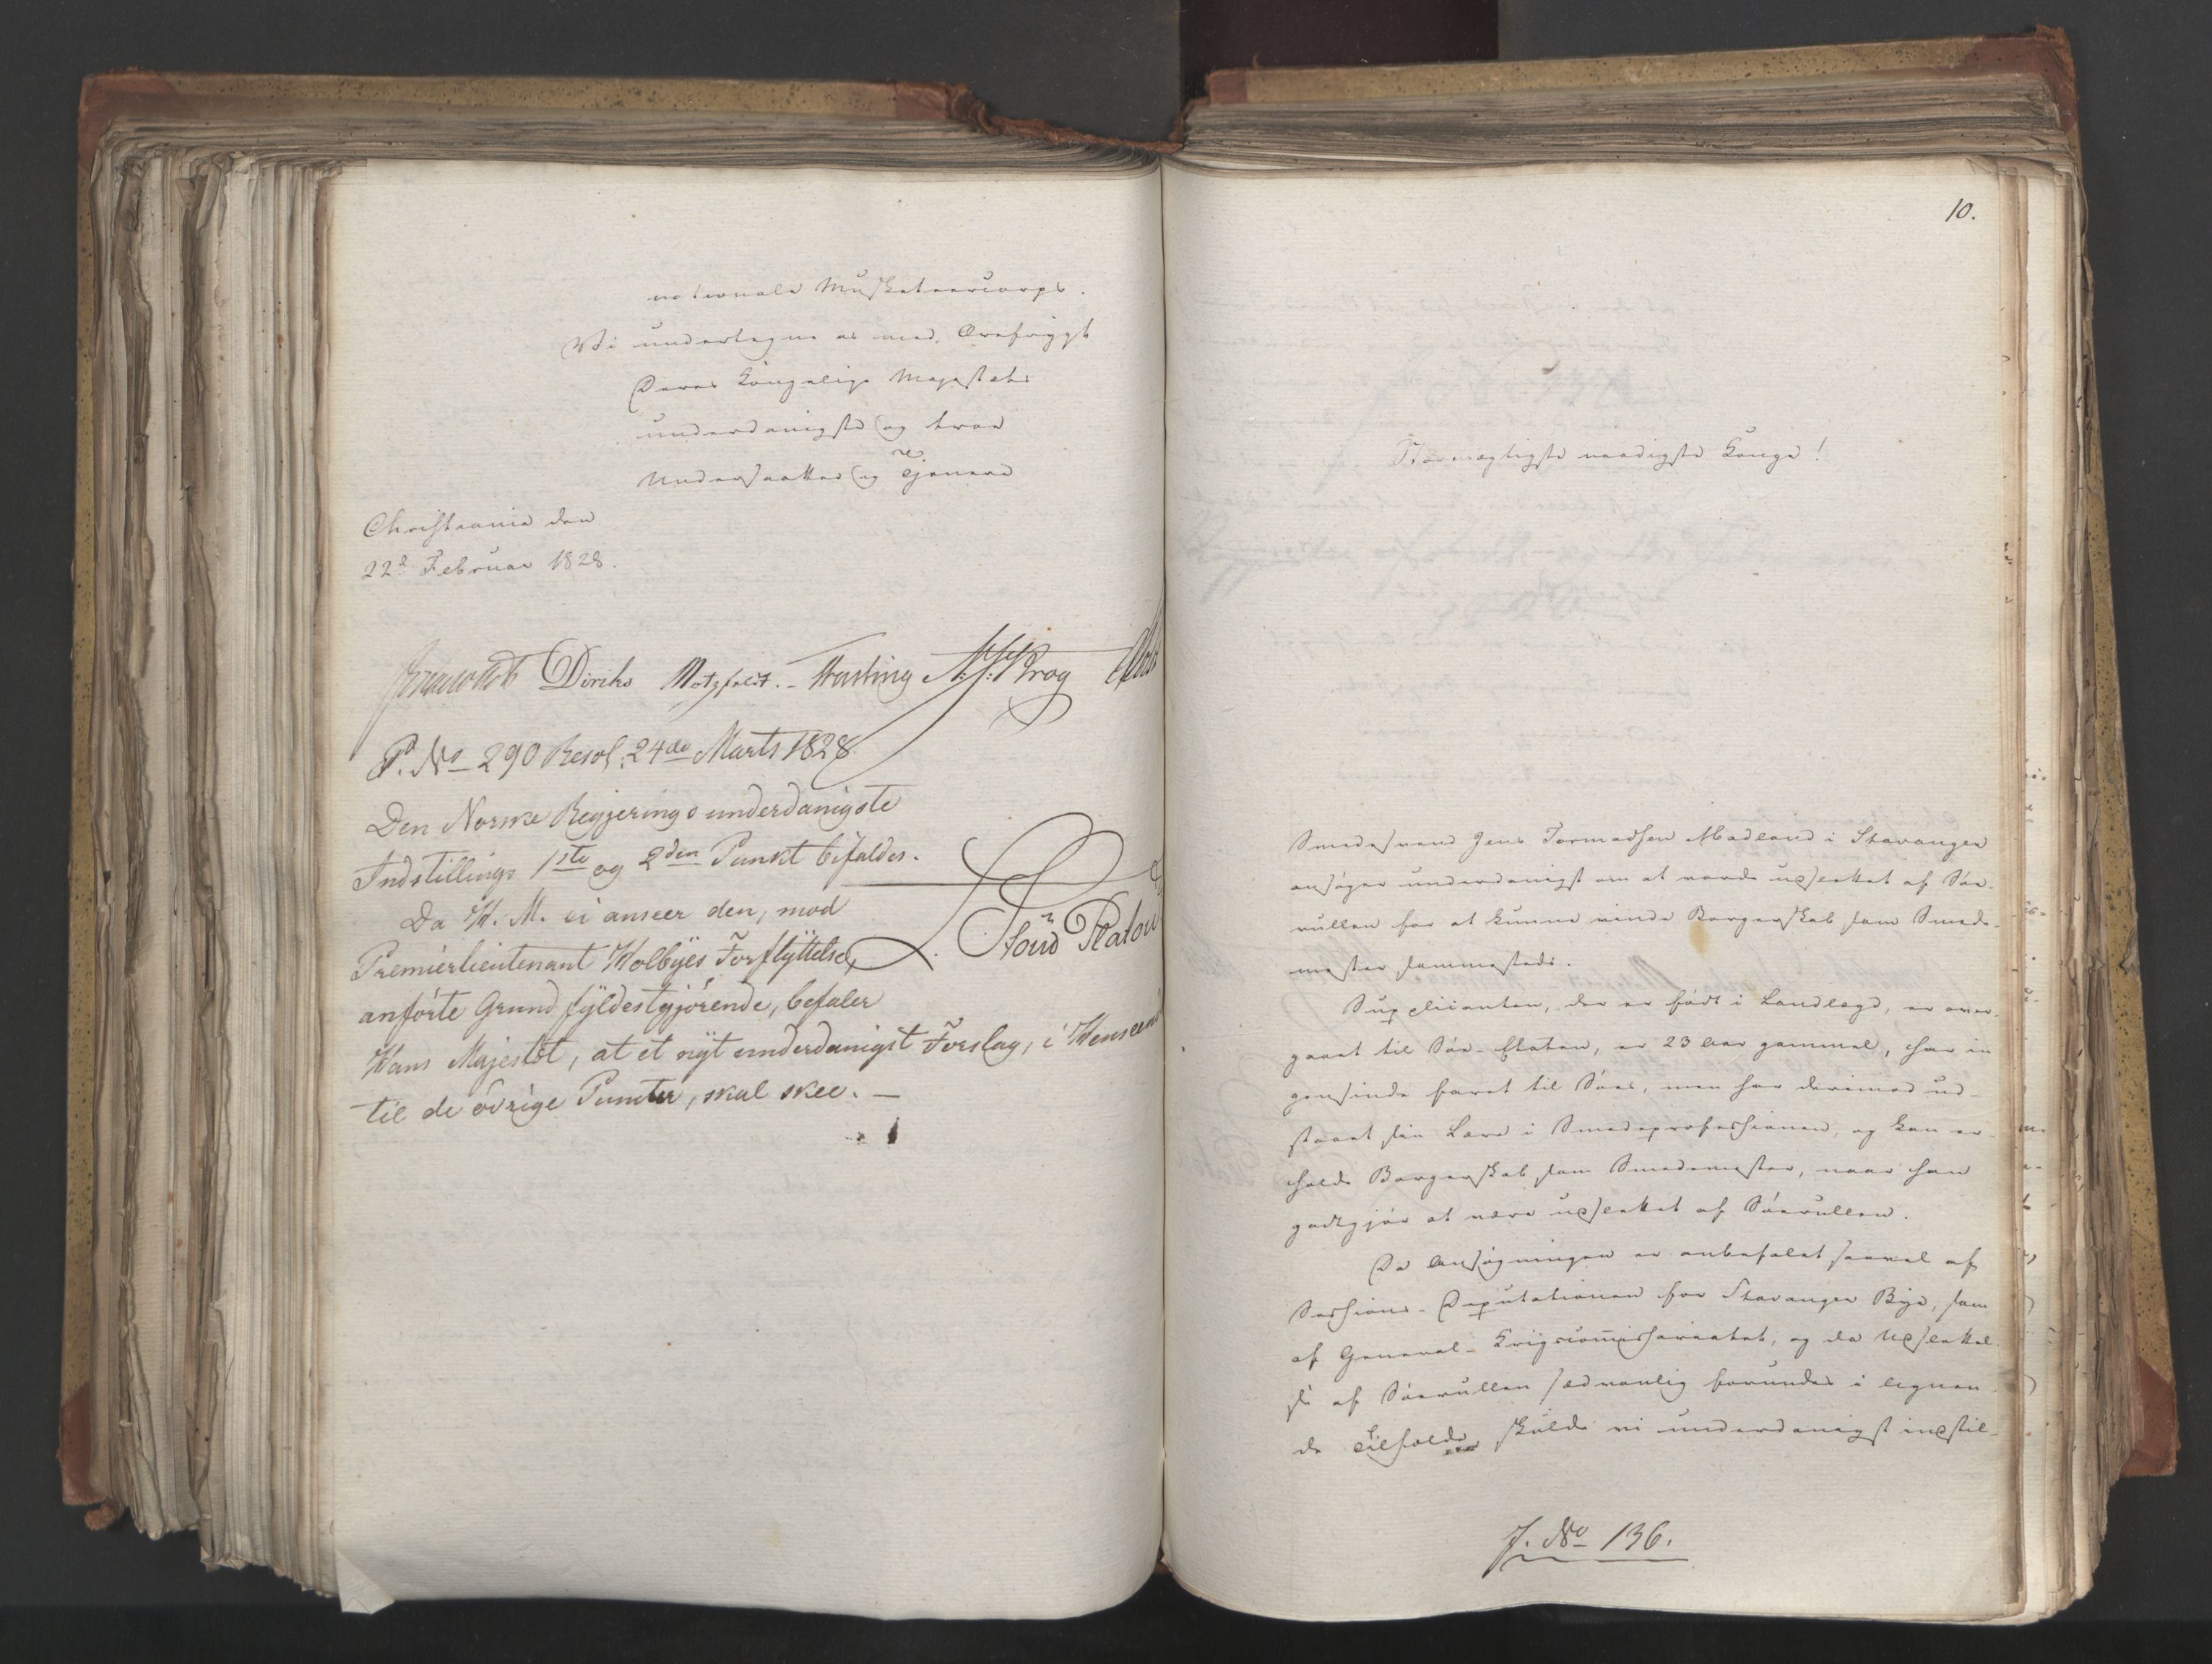 nationale Musketeercorps.
Vi undertegne os med Ærefrygt
Deres Kongelige Majestæts
underdanigste og troe
Undersaatter og Tjenere
Christiania den
22d Februar 1828.
Diriks Motzfeldt. Fasting Krog
P. No 290 Resol: 24de Marts 1828.
Den Norske Regjerings underdanigste
Indstillings 1ste og 2den Punkt bifaldes.
Da H. M. ei anseer den, mod
Premierlieutenant Holbÿes Forflÿttelse,
anförte Grund fÿldestgjörende, befaler
Hans Majestet, at et nÿt underdanigst Forslag, i Henseende
til de övrige Puncter, skal skee. —
Platou
10.
Stormægtigste naadigste Konge!
Smedesvend Jens Tormodsen Madland i Stavanger
ansøger underdanigst om at vorde udslettet af Søe-
rullen for at kunne vinde Borgerskab som Smede-
mester sammesteds.
Supplicanten, der er født i Landlægd, er over-
gaaet til Søe-Etaten, er 23 Aar gammel, har in-
gensinde faret til Søes, men har derimod ud-
staaet sin Lære i Smedeprofessionen, og kan er-
holde Borgerskab som Smedemester, naar han
godtgjør at være udslettet af Søerullen.
Da Ansøgningen er anbefalet saavel af
Sessions-Deputationen for Stavanger Bye, som
af General-Krigscommissariatet, og da Udslettel-
se af Søerullen sædvanlig forundes i lignen-
de Tilfælde, skulde vi underdanigst indstil-
J. No 136.